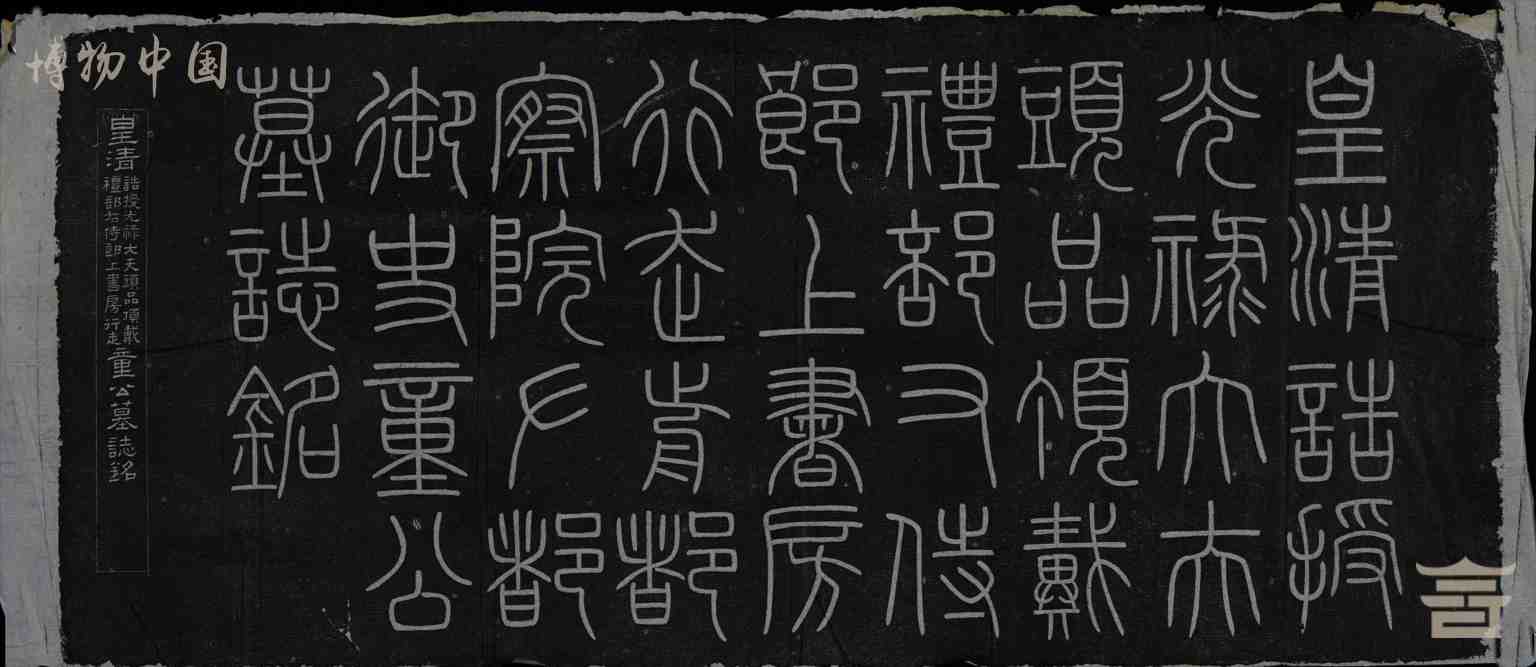 皇清誥授
光祿大夫
頭品頂戴
禮部右侍
郎上書房
行走前都
察院左都
御史童公
墓誌銘
皇清
誥授光祿大夫頭品頂戴
禮部右侍郎上書房行走
童公墓誌銘
博物中国